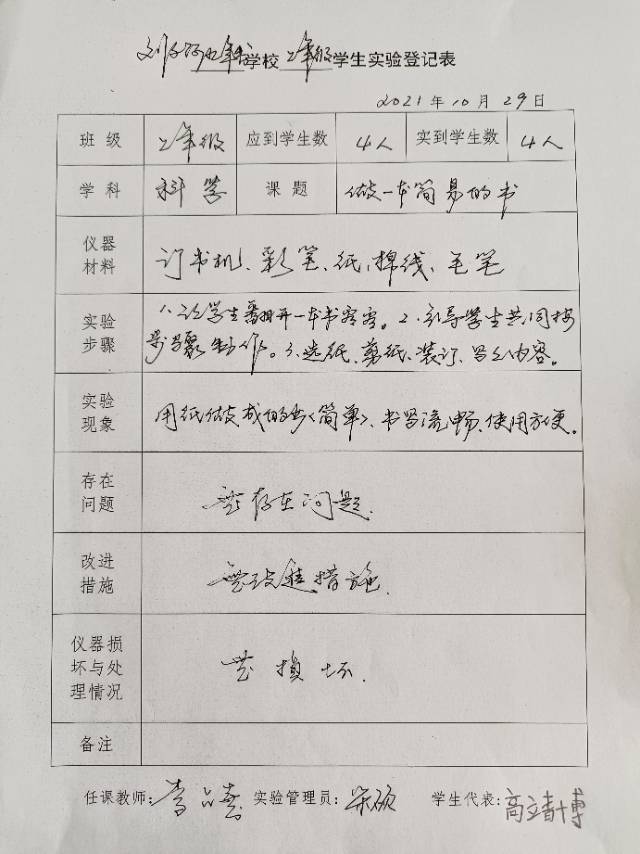 学校 二年级 学生实验登记表
2021年10月29日
班级 二年级 应到学生数 4人 实到学生数 4人
学科 科学 课题 做一本简易的书
仪器材料 订书机、彩笔、纸、棉线、毛笔
实验步骤 1.让学生翻开一本书看看。2.引导学生共同按
步骤制作。3.选纸、剪纸、装订、写上内容。
实验现象 用纸做成的书<简单>、书写流畅、使用方便。
存在问题 无存在问题.
改进措施 无改进措施.
仪器损坏与处理情况 无损坏.
备注
任课教师: 李 实验管理员: 学生代表: 高